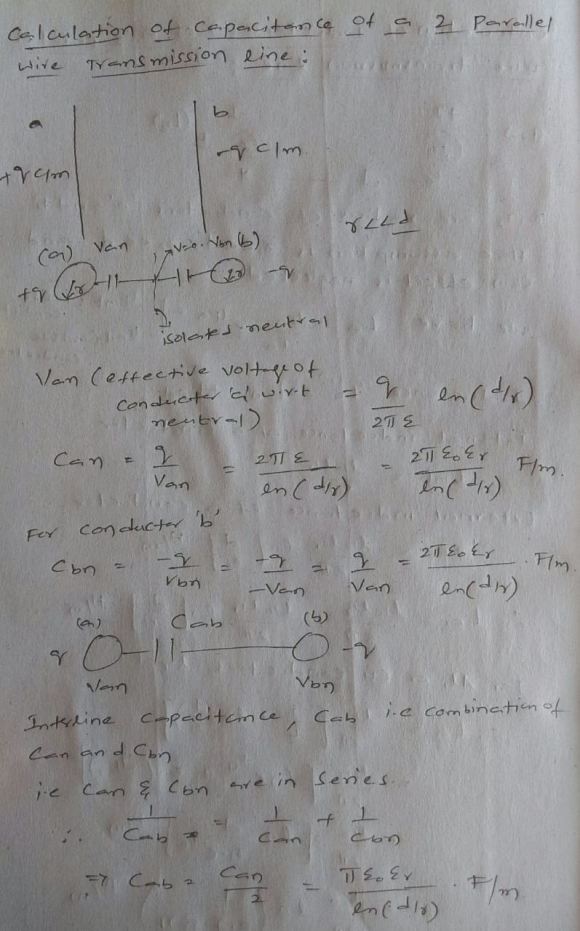 Calculation of Capacitance of a 2 Parallel
wire Transmission line:
a b
+q C/m -q C/m
r<<d
(a) Van V=0. Vbn (b)
+q r r -q
isolated neutral
Van (effective voltage of
conductor 'a' w.r.t = q/2πε ln(d/r)
neutral)
Can = q/Van = 2πε/ln(d/r) = 2πε₀εr/ln(d/r) F/m.
For conductor 'b'
Cbn = -q/Vbn = -q/-Van = q/Van = 2πε₀εr/ln(d/r) F/m.
(a) Cab (b)
q -q
Van Vbn
Interline capacitance, Cab i.e combination of
Can and Cbn
i.e Can & Cbn are in Series.
∴ 1/Cab = 1/Can + 1/Cbn
⇒ Cab = Can/2 = πε₀εr/ln(d/r) . F/m